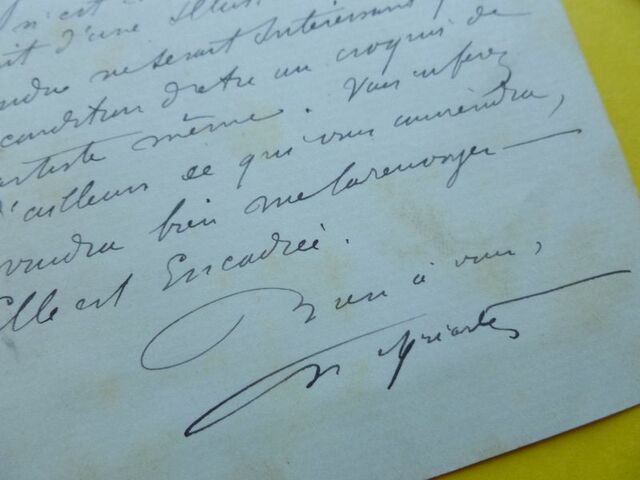 n'est
it d'une Illus
ndre ne serait Intéressant
condition d'etre un croquis de
artiste même. Vous en ferez
d'ailleurs ce qui vous conviendra,
voudra bien me la renvoyer —
Elle est Encadrée.
Bien à vous,
Yriarte